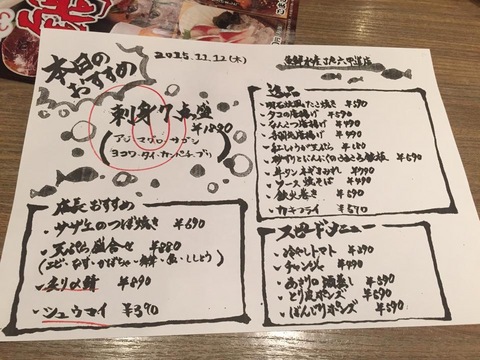 本日の
おすすめ
2015.11.12(木)
魚鮮水産 JR六甲道店
刺身7点盛
¥1890
(アジ・マグロ・サゴシ
ヨコワ・タイ・カンパチ・ブリ)
店長おすすめ
・サザエのつぼ焼き ¥690
・天ぷら盛合せ ¥880
(エビ・なす・かぼちゃ・・ししとう)
・炙り〆鯖 ¥890
・シュウマイ ¥390
逸品
・明石焼風たこ焼き ¥590
・タコの唐揚げ ¥590
・なんこつ唐揚げ ¥490
・唐揚げ ¥490
・紅しょうが天ぷら ¥180
・砂ずりとにんにくの鉄板 ¥590
・牛タンネギまみれ ¥790
・ソース焼そば ¥490
・鉄火巻き ¥590
・カキフライ ¥590
スピードメニュー
・冷やしトマト ¥390
・チャンジャ ¥490
・あさりの酒蒸し ¥590
・とり皮ポンズ ¥590
・ぼんじりポンズ ¥590